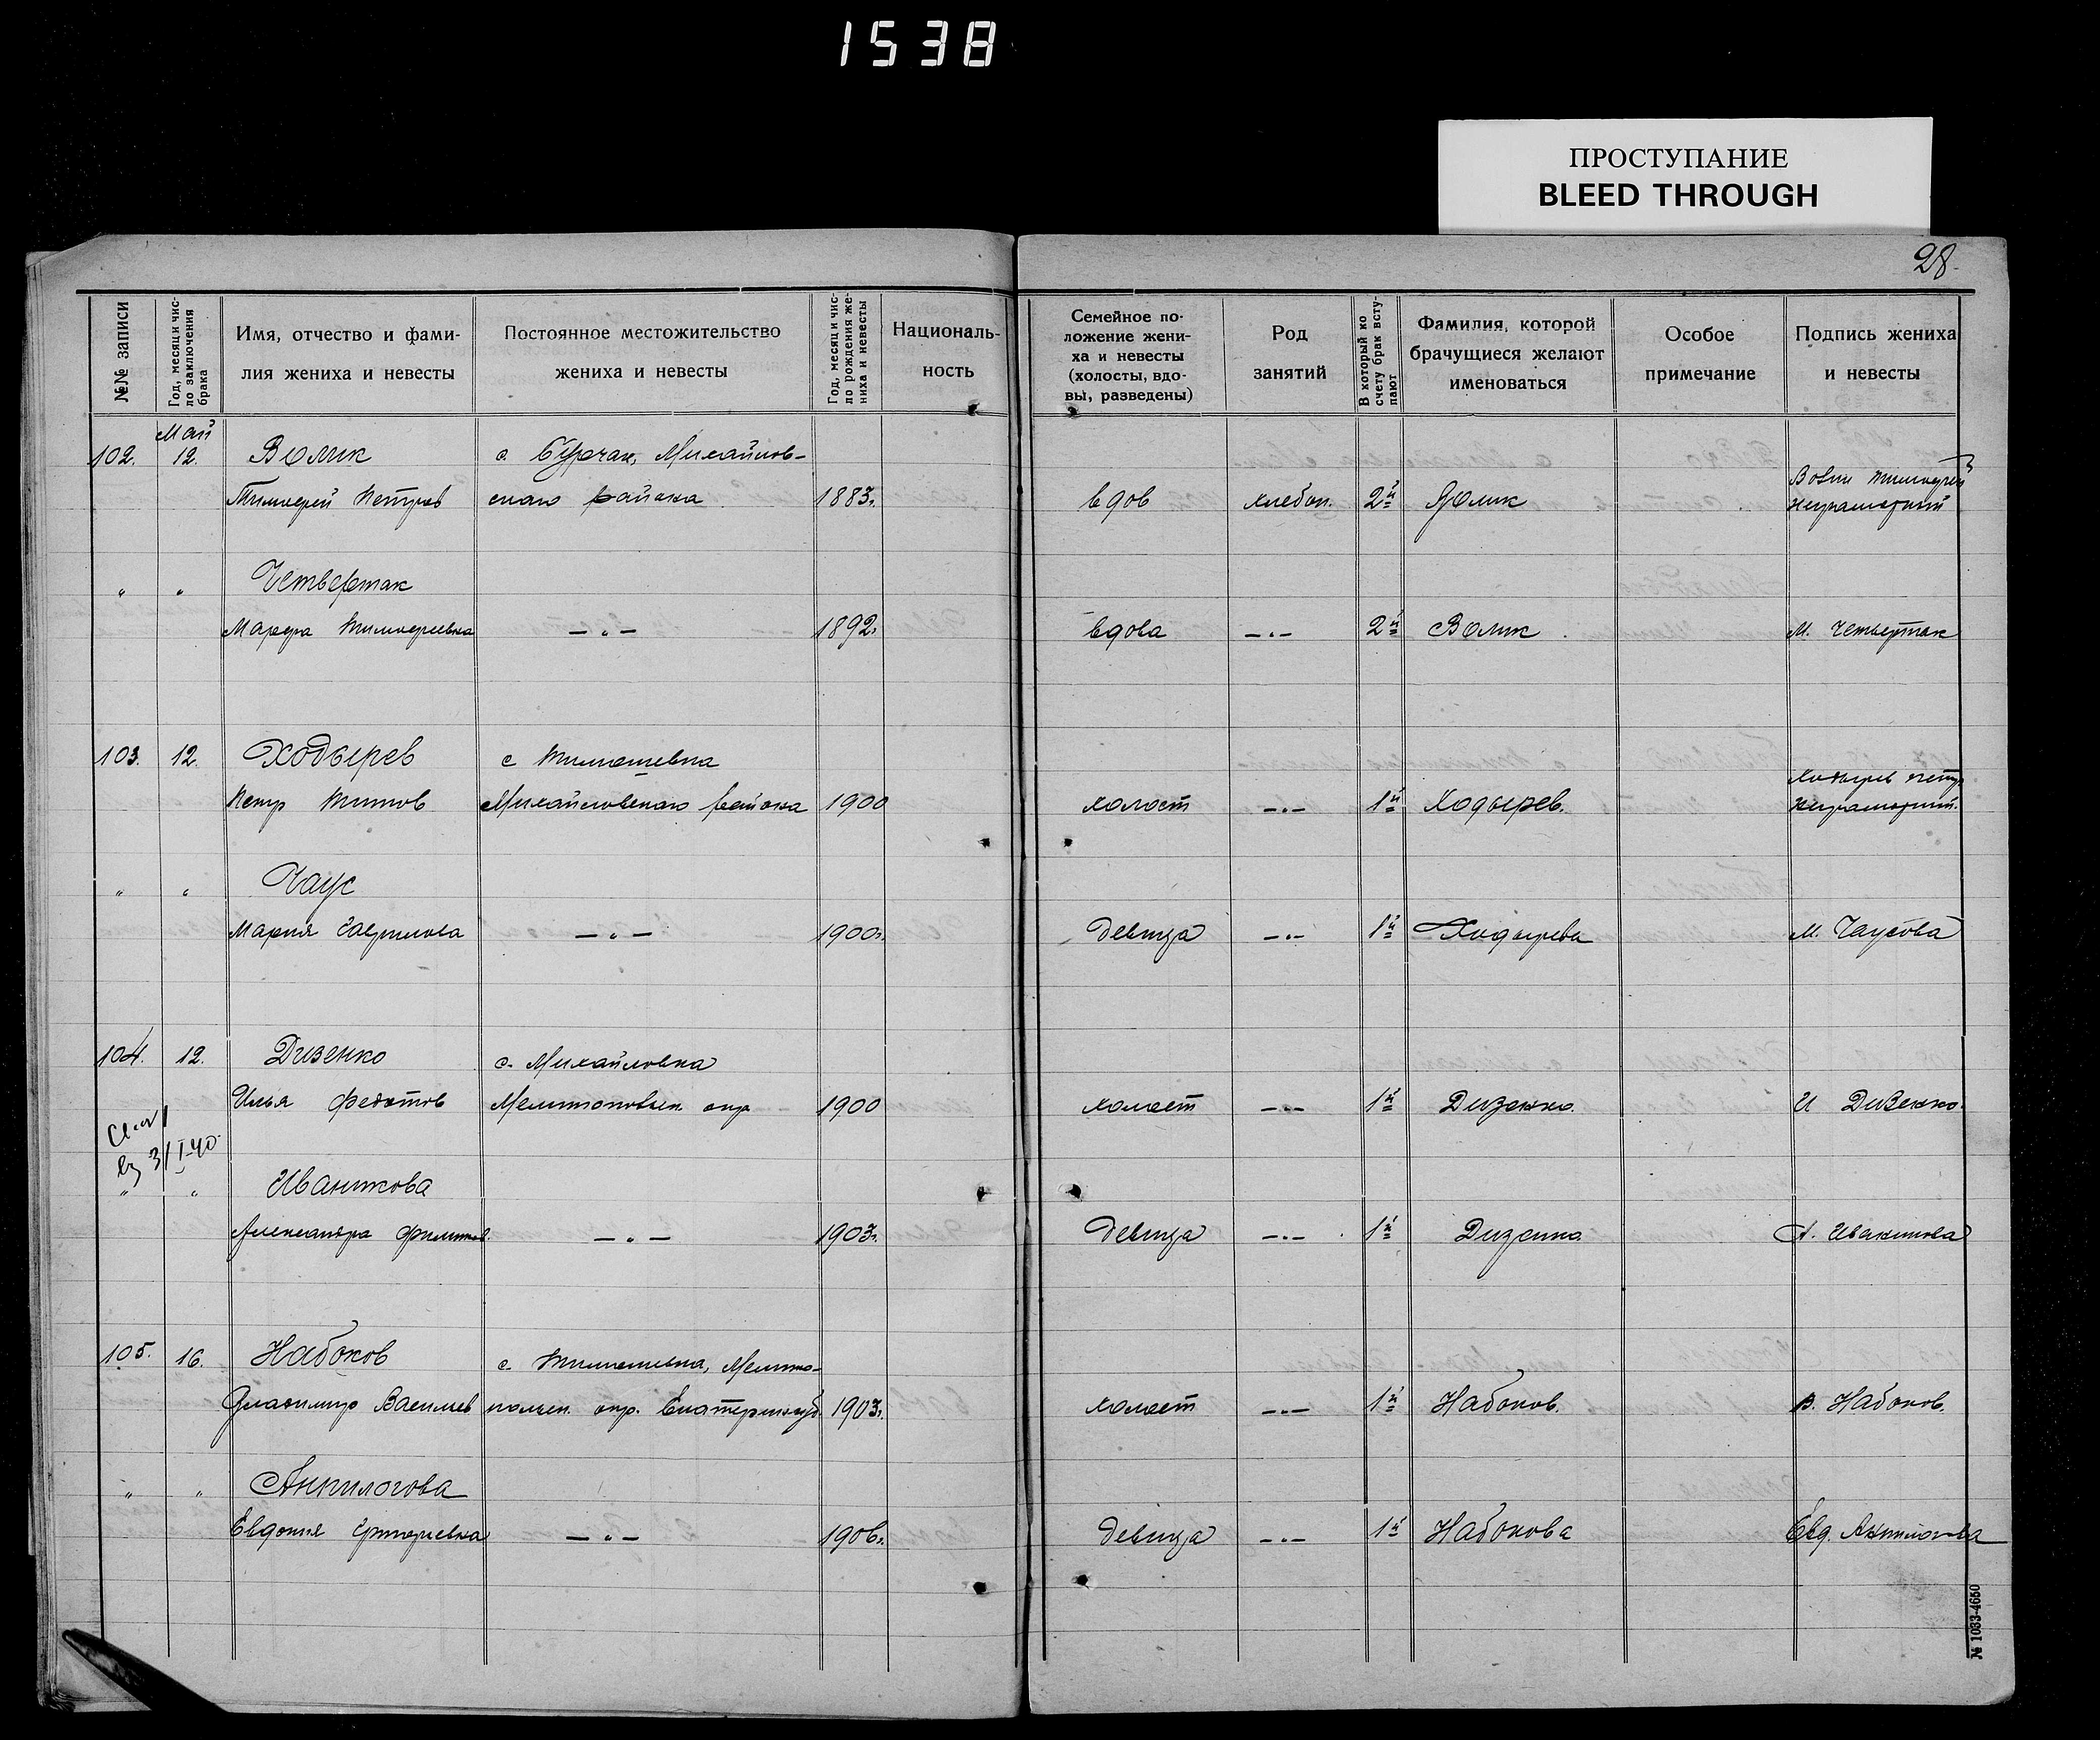 1538
ПРОСТУПАНИЕ
BLEED THROUGH
28
№№ записи
Год, месяц и чис-
ло заключения
брака
Имя, отчество и фами-
лия жениха и невесты
Постоянное местожительство
жениха и невесты
Год, месяц и чис-
ло рождения же-
ниха и невесты
Националь-
ность
Семейное по-
ложение жени-
ха и невесты
(холосты, вдо-
вы, разведены)
Род
занятий
В который ко
счету брак всту-
пают
Фамилия, которой
брачущиеся желают
именоваться
Особое
примечание
Подпись жениха
и невесты
Май
102. 12. Волик с. Бурчак, Михайлов-
Тимофей Петров ского района 1883г. вдов хлебоп. 2й Волик Волик Тимофей
неграмотный
" " Четвертак
Марфа Тимофеевна —"— 1892г. вдова —"— 2й Волик М. Четвертак
103. 12. Ходырев с Тимошевка
Петр Титов Михайловского района 1900 холост —"— 1й Ходырев. Ходырев Петр
неграмотный.
" " Чаус
Мария Гаврилова —"— 1900г. девица —"— 1й Ходырева М. Чаусова
104. 12. Дизенко с. Михайловка
Илья Федотов Мелитопольск. окр 1900 холост —"— 1й Дизенко. И Дизенко.
3/I-40.
" " Иваникова
Александра Филипов. —"— 1903г. девица —"— 1й Дизенко А.
105. 16. Набоков с. Тимошевка, Мелито-
Владимир Васильев польск. окр. 1903г. холост —"— 1й Набоков. В. Набоков.
" " Анпилогова
Евдокия Григорьевна —"— 1906г. девица —"— 1й Набокова Евд. Анпилогова
№ 1033-4650